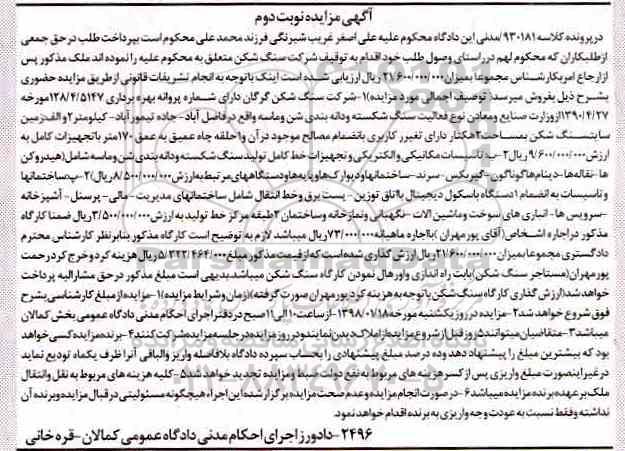 آگهی مزایده نوبت دوم
در پرونده کلاسه ۹۳۰۱۸۱/مدنی این دادگاه محکوم علیه علی اصغر غریب شیرنگی فرزند محمد علی محکوم است بپرداخت طلب در حق جمعی
از طلبکاران که محکوم لهم در راستای وصول طلب خود اقدام به توقیف شرکت سنگ شکن متعلق به محکوم علیه را نموده اند ملک مذکور پس
از ارجاع امر بکارشناس مجموعا بمیزان ۲۱/۶۰۰/۰۰۰/۰۰۰ ریال ارزیابی شده است اینک باتوجه به انجام تشریفات قانونی از طریق مزایده حضوری
بشرح ذیل بفروش میرسد( توصیف اجمالی مورد مزایده)۱-شرکت سنگ شکن گرگان دارای شماره پروانه بهره برداری ۱۲۸/۴/۵۱۴۷مورخه
۱۳۹۰/۴/۲۷ از وزارت صنایع و معادن نوع فعالیت سنگ شکسته ودانه بندی شن وماسه واقع در فاضل آباد- جاده تیمورآباد- کیلومتر۲ و الف زمین
سایت سنگ شکن بمساحت۲هکتار دارای تغییر کاربری بانضمام مصالح موجود در آن و۱حلقه چاه عمیق به عمق ۱۷۰متر باتجهیزات کامل به
ارزش ۹/۶۰۰/۰۰۰/۰۰۰ ریال ۲-ب- تاسیسات مکانیکی والکتریکی وتجهیزات خط کامل تولید سنگ شکسته ودانه بندی شن وماسه شامل(هیدروکن
ها -نقاله ها- دینام هاگوناگون- گیربکس -سرند-ساختمانها ودیوارک هاو پایه هاودستگاههای مرتبط به ارزش ۸/۵۰۰/۰۰۰/۰۰۰ ریال)۲-پ-ساختمانها
و تاسیسات به انضمام ۱دستگاه باسکول دیجیتال بااتاق توزین- پست برق وخط انتقال شامل ساختمانهای مدیریت-مالی- پرسنل- آشپزخانه
-سرویس ها- انباری های سوخت وماشین آلات -نگهبانی ونمازخانه وساختمان ۲طبقه مرکز خط تولید به ارزش ۳/۵۰۰/۰۰۰/۰۰۰ریال ضمنا کارگاه
مذکور در اجاره اشخاص(آقای پورمهران )بااجاره ماهیانه ۷۳/۰۰۰/۰۰۰ریال میباشد لازم به توضیح است کارگاه مذکور بنابر نظر کارشناس محترم
دادگستری مجموعا بمیزان ۲۱/۶۰۰/۰۰۰/۰۰۰ ریال ارزش گذاری شده است که از قیمت مذکور مبلغ ۵/۳۲۲/۴۶۴/۰۰۰ ریال هزینه کرد و خرج کرد رحمت
پورمهران(مستاجر سنگ شکن)بابت راه اندازی واورهال نمودن کارگاه سنگ شکن میباشد بدیهی است مبلغ مذکور در حق مشارالیه پرداخت
خواهد شد(ارزش گذاری کارگاه سنگ شکن باتوجه به هزینه کرد پورمهران صورت گرفته)(زمان وشرایط مزایده)۱-مزایده از مبلغ کارشناسی بشرح
فوق شروع خواهد شد۲-مزایده در روز یکشنبه مورخه ۱۳۹۸/۰۱/۱۸-از ساعت ۱۰الی ۱۱ صبح در دفتر اجرای احکام مدنی دادگاه عمومی بخش کمالان
میباشد۳-متقاضیان میتوانند۵روز قبل از شروع مزایده از املاک دیدن نمایند و در روز مزایده در جلسه مزایده شرکت کنند۴-برنده مزایده کسی خواهد
بود که بیشترین مبلغ را پیشنهاد دهد وده در صد مبلغ پیشنهادی را بحساب سپرده دادگاه بلافاصله واریز والباقی آنرا ظرف یکماه تودیع نماید
در غیر اینصورت مبلغ واریزی پس از کسر هزینه های مربوط به نفع دولت ضبط ومزایده تجدید خواهد شد۵-کلیه هزینه های مربوط به نقل وانتقال
ملک بر عهده برنده مزایده میباشد۶-در صورت انجام مزایده وعدم صحت مزایده برگزار شده این اجراء هیچگونه مسئولیتی در قبال مزایده وبرنده آن
نداشته وفقط نسبت به عودت وجه واریزی به برنده اقدام خواهد نمود.
۲۴۹۶-دادورز اجرای احکام مدنی دادگاه عمومی کمالان-قره خانی